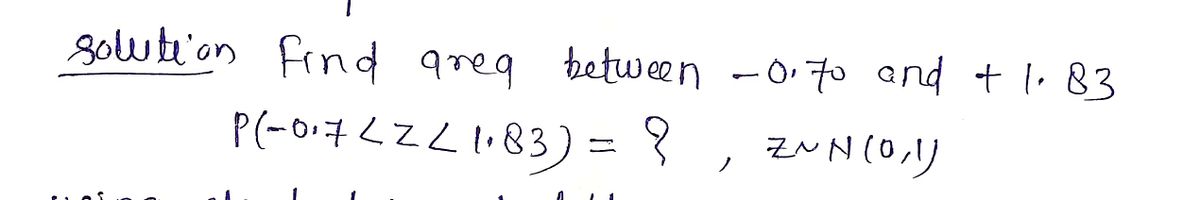 solution Find area between -0.70 and + 1.83
P(-0.7 < Z < 1.83) = ? , Z~N(0,1)